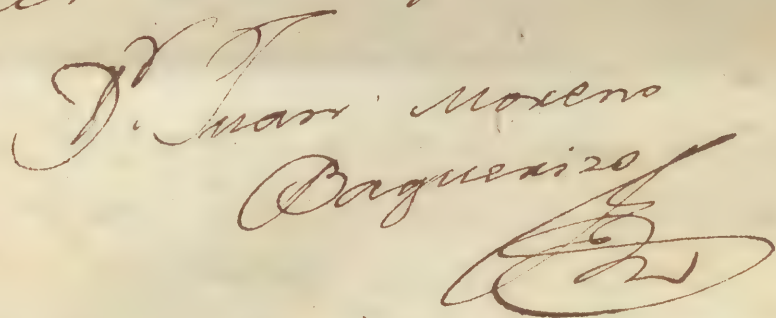 D.r Juan Moreno
Baquerizo